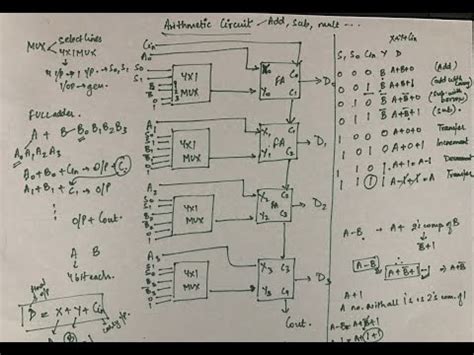 Arithmetic Circuit - Add, Sub, mult ...
MUX
Select lines
4X1 MUX
4 I/P → 1 O/P → S0, S1
FULL adder
A + B → B0 B1 B2 B3
A0 A1 A2 A3
A0 + B0 + Cin → O/P + C1
A1 + B1 + C1 → O/P
O/P + Cout.
A B
4 bit each.
D = X + Y + Cin
Cin
A0
S1
S0
B
B
0
1
4X1
MUX
X0 C0
FA
Y0 C1
D0
A1
S1
S0
0
1
4X1
MUX
X1 C1
FA
Y1 C2
D1
A2
S1
S0
0
1
4X1
MUX
X2 C2
FA
Y2 C3
D2
A3
S1
S0
0
1
4X1
MUX
X3 C3
Y3 C4
D3
Cout.
X+Y+Cin
S1 S0 Cin Y D
0 0 0 B A+B+0 (Add)
0 0 1 B A+B+1 (add with carry)
0 1 0 B̅ A+B̅+0 (Sub with borrow)
0 1 1 B̅ A+B̅+1 (Sub).
1 0 0 0 A+0+0 Transfer
1 0 1 0 A+0+1 Increment
1 1 0 1 A-1 Decrement
1 1 1 1 A-1+1=A Transfer
A-B → A + 2's comp of B
B̅+1
A-B
A+B̅+1
A+1
A no. with all 1's is 2's comp of 1